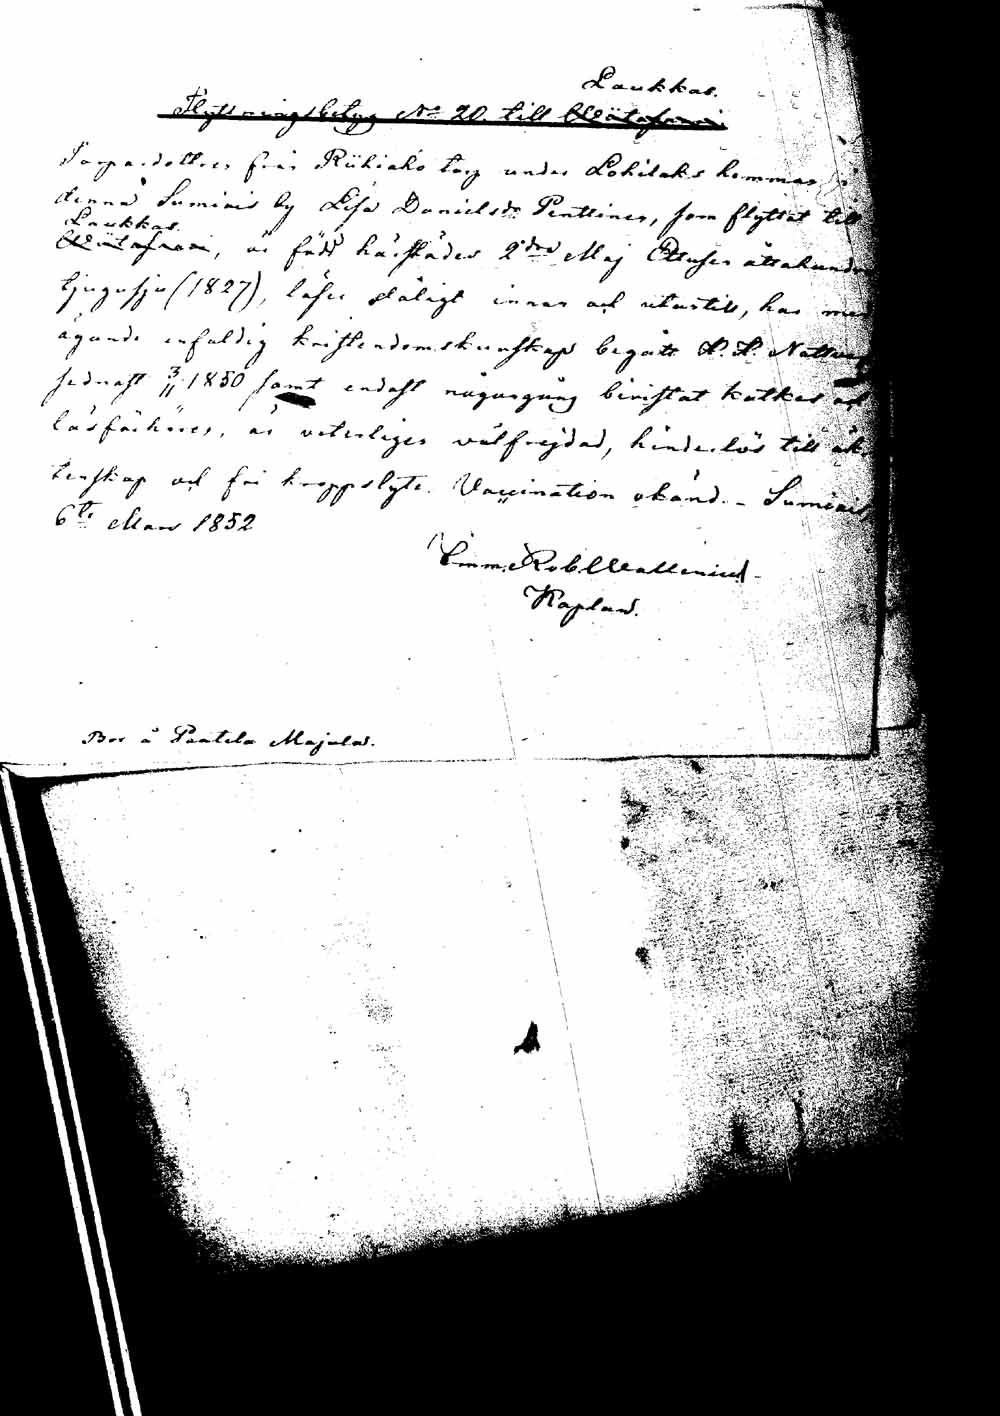 Laukkas.
Flyttningsbetyg No 20. till Wiitasaari
Torparedottren från Riihiaho torp under Lokilaks hemman i
denna Sumiais by Lisa Danielsdr Penttinen, som flyttat till
Laukkas.
Wiitasaari, är född härstädes 2dra Maj Ettusen åttahundra
tjugusju (1827), läser dåligt innan och utantill, har med
ägande enfaldig kristendomskunskap begått H. H. Nattvard
sednast 3/11 1850 samt endast någongång bivistat katkes och
läsförhören, är veterligen välfrejdad, hinderlös till äk-
tenskap och fri kroppslyte. Vaccination okänd. - Sumiais,
6te Mars 1852
Emm. Rob. Wallenius
Kaplan.
Bor å Paatela Majalad.